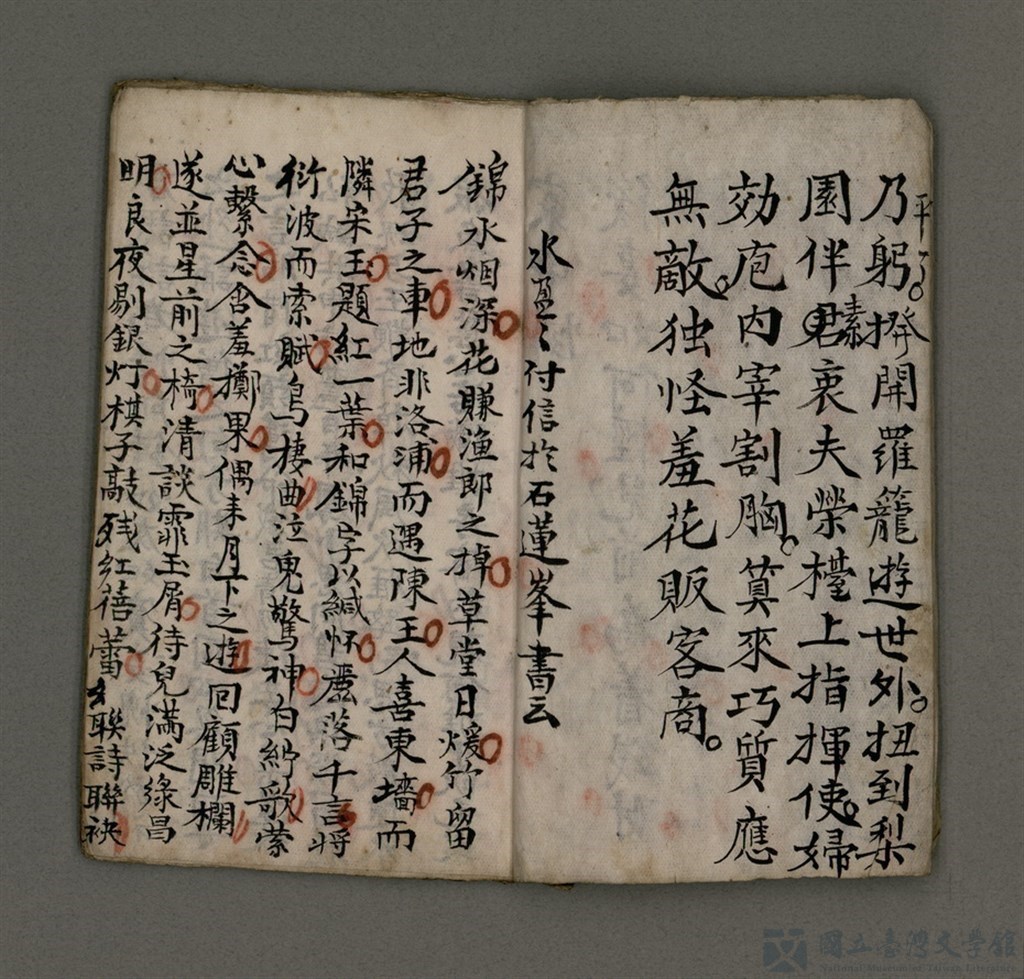 乃躬。揆開羅籠遊世外。扭到梨
園伴君素衷夫榮檯上指揮使。婦
効庖内宰割胸。算來巧質應
無敵。独怪羞花販客商。
水盈〻付信於石蓮峯書云
錦水烟深花賺渔郎之掉草堂日煖竹留
君子之車地非洛浦而遇陳王人喜東墻而
隣宋玉題紅一葉和錦字以緘怀麗落千言将
衍波而索賦烏棲曲泣鬼驚神白紵歌縈
心繫念含羞擲果偶来月下之遊回顧雕欄
遂並星前之椅清談霏玉屑待兒满泛綠昌
明良夜剔銀灯棋子敲残红蓓蕾幺聯詩聯袂
國立臺灣文學館